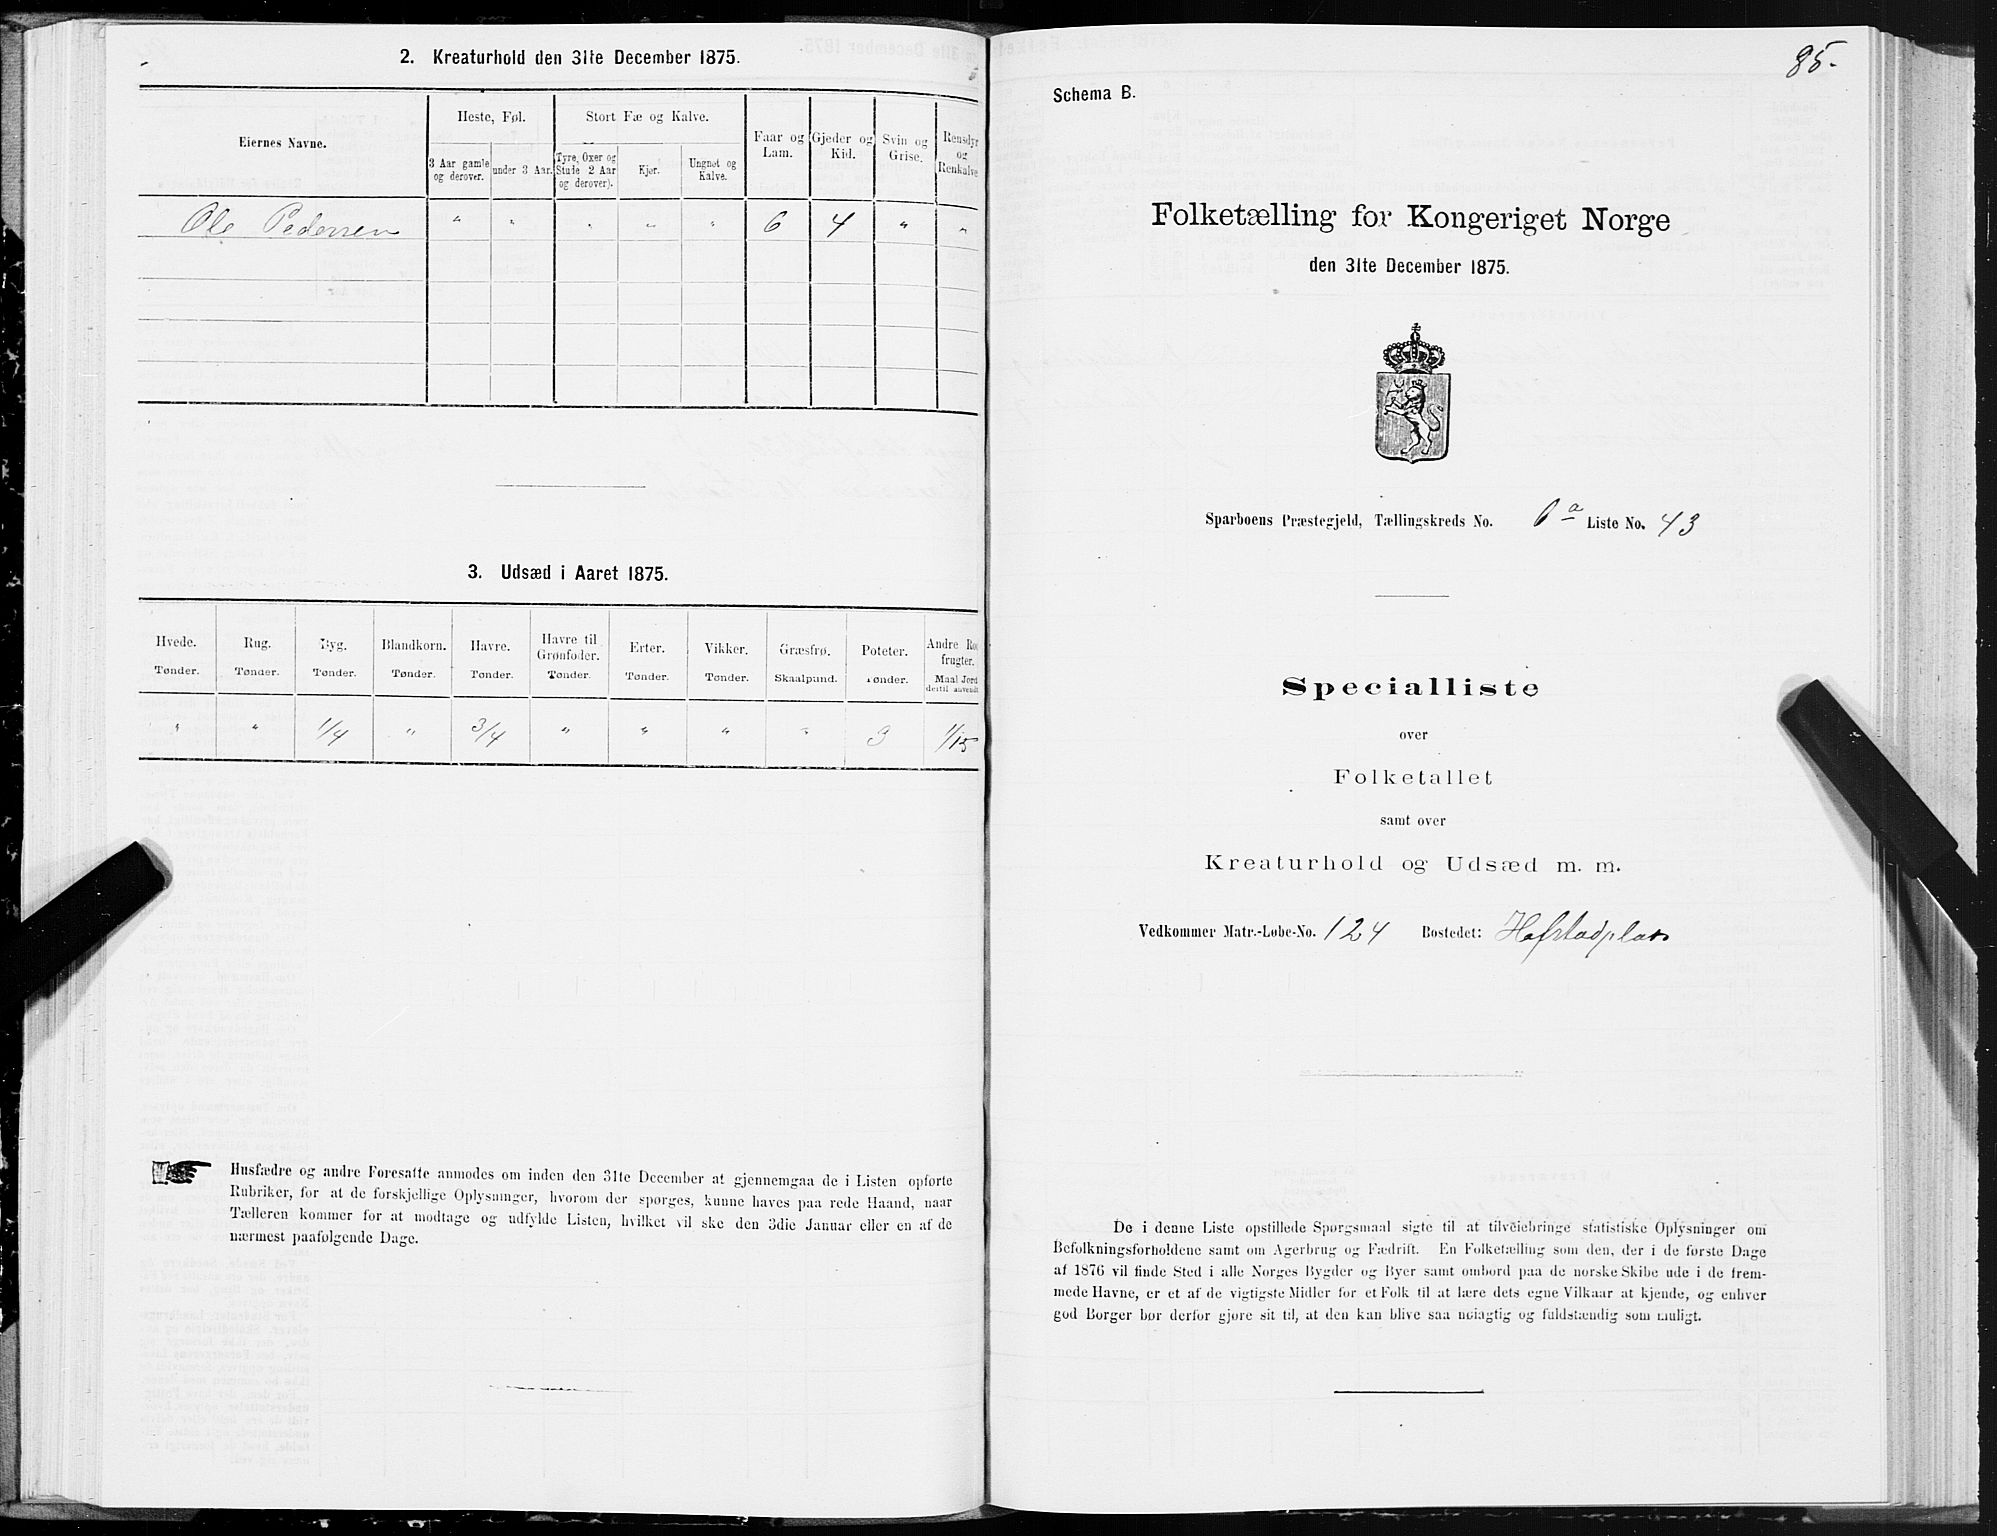 2. Kreaturhold den 31te December 1875.
Eiernes Navne.
Heste, Føl.
Stort Fæ og Kalve.
Faar og Lam.
Gjeder og Kid.
Svin og Grise.
Rensdyr og Renkalve
3 Aar gamle og derover.
under 3 Aar.
Tyre, Oxer og Stude 2 Aar og derover).
Kjør.
Ungnøt og Kalve.
Ole Pedersen " " " " " 6 4 " "
3. Udsæd i Aaret 1875.
Hvede. Rug. Byg. Blandkorn. Havre. Havre til Grønfoder. Erter. Vikker. Græsfrø. Poteter. Andre Rodfrugter.
Tønder. Tønder. Tønder. Tønder. Tønder. Tønder. Tønder. Tønder. Skaalpund. Tønder. Maal Jord dertil anvendt
" " 1/4 " 3/4 " " " " 3 1/15
Husfædre og andre Foresatte anmodes om inden den 31te December at gjennemgaa de i Listen opførte
Rubriker, for at de forskjellige Oplysninger, hvorom der spørges, kunne haves paa rede Haand, naar
Tælleren kommer for at modtage og udfylde Listen, hvilket vil ske den 3die Januar eller en af de
nærmest paafølgende Dage.
85.
Schema B.
Folketælling for Kongeriget Norge
den 31te December 1875.
Sparboens Præstegjeld, Tællingskreds No. 6a Liste No. 43
Specialliste
over
Folketallet
samt over
Kreaturhold og Udsæd m. m.
Vedkommer Matr.-Løbe-No. 124 Bostedet: Hofstadplats
De i denne Liste opstillede Spørgsmaal sigte til at tilveiebringe statistiske Oplysninger om
Befolkningsforholdene samt om Agerbrug og Fædrift. En Folketælling som den, der i de første Dage
af 1876 vil finde Sted i alle Norges Bygder og Byer samt ombord paa de norske Skibe ude i de frem-
mede Havne, er et af de vigtigste Midler for et Folk til at lære dets egne Vilkaar at kjende, og enhver
god Borger bør derfor gjøre sit til, at den kan blive saa nøiagtig og fuldstændig som muligt.